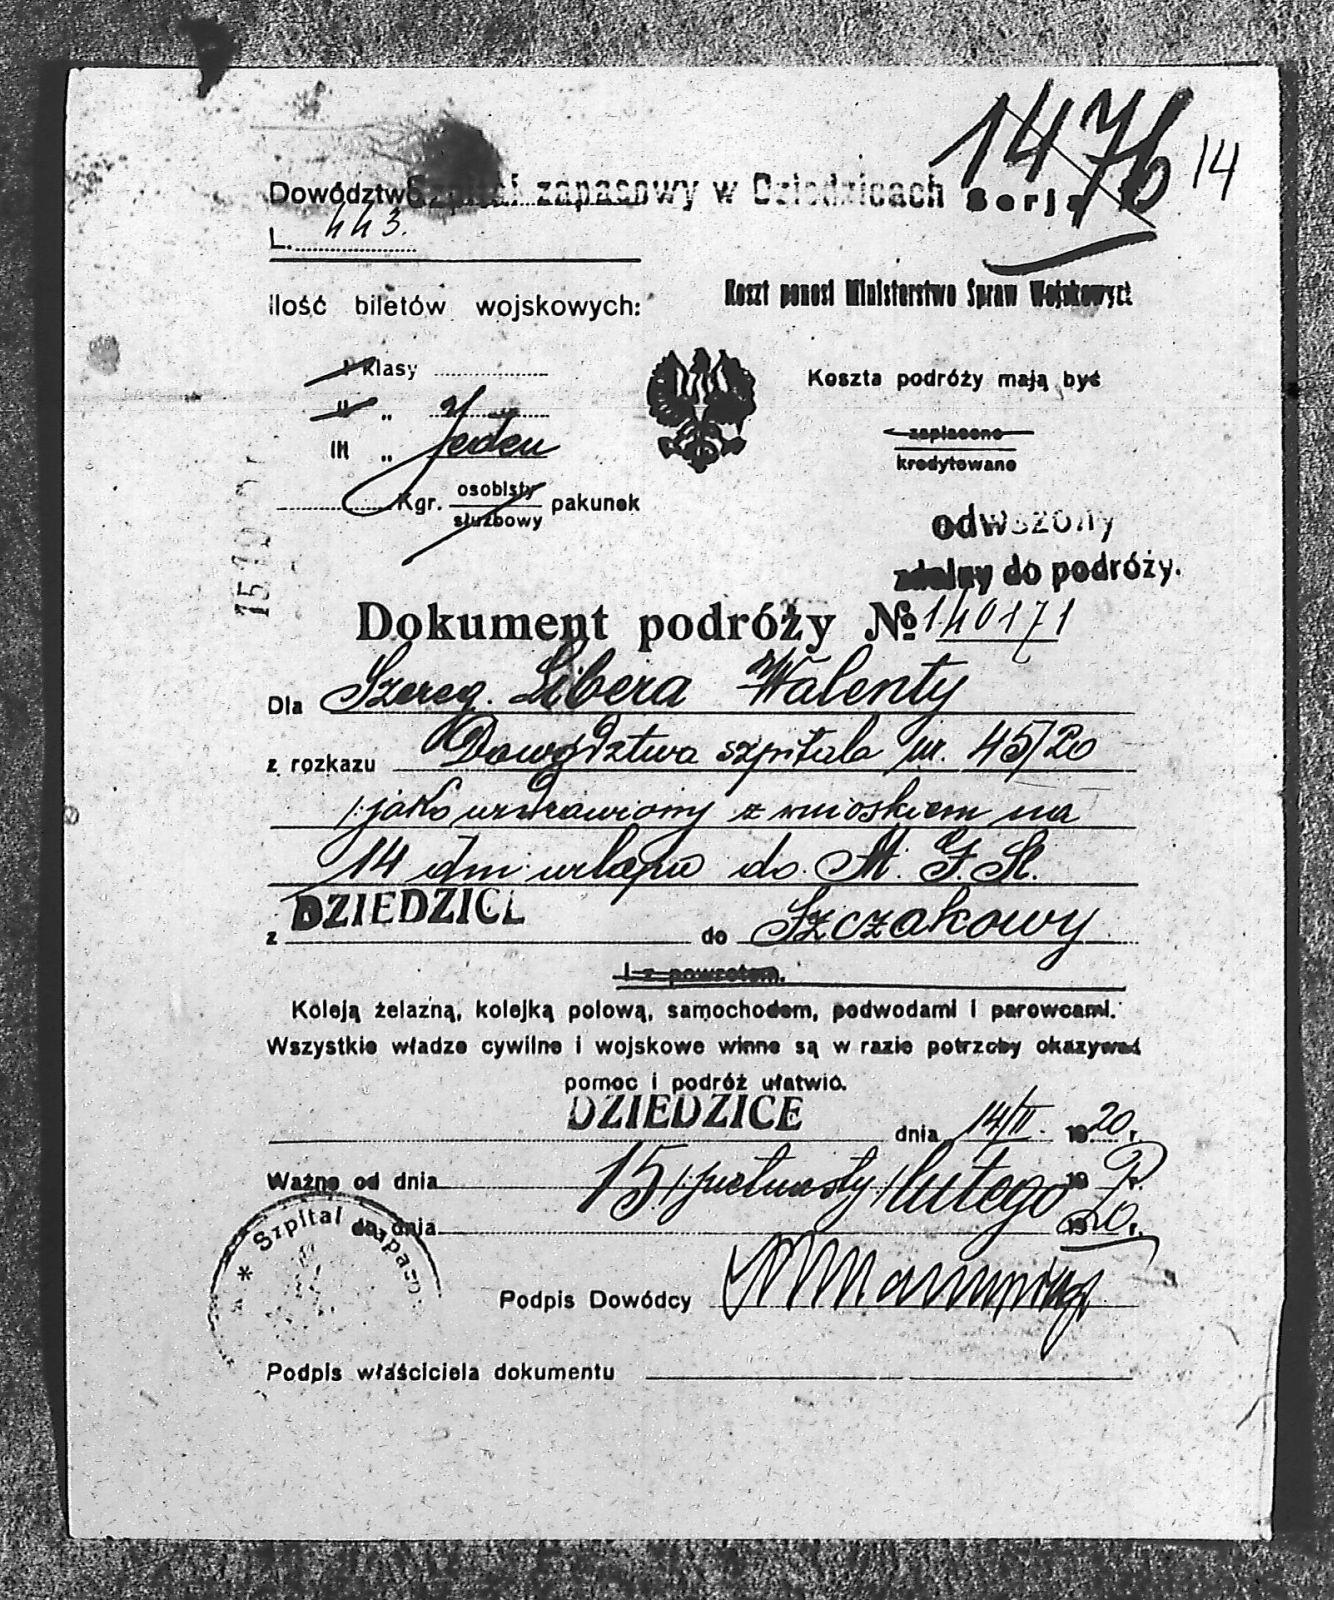 1476 14
Dowództwo Szpital zapasowy w Dziedzicach Serja
L. 443.
Ilość biletów wojskowych:
Koszt ponosi Ministerstwo Spraw Wojskowych
I klasy
II „
III „ Jeden
Koszta podróży mają być
zapłacone
kredytowane
Kgr. osobisty
służbowy pakunek
odwszony
zdolny do podróży.
15 19
Dokument podróży № 140171
Dla Szereg. Libera Walenty
z rozkazu Dowództwa szpitala nr. 45/20
jako uzdrawiony z wnioskiem na
14 dni urlapu do
z DZIEDZICE do Szczakowy
i z powrotem.
Koleją żelazną, kolejką polową, samochodem, podwodami i parowcami.
Wszystkie władze cywilne i wojskowe winne są w razie potrzeby okazywać
pomoc i podróż ułatwić.
DZIEDZICE dnia 14/II. 1920 r.
Ważne od dnia 15 /piętnasty/ lutego 19 r.
do dnia 1920 r.
* Szpital zapasow
Podpis Dowódcy
Podpis właściciela dokumentu